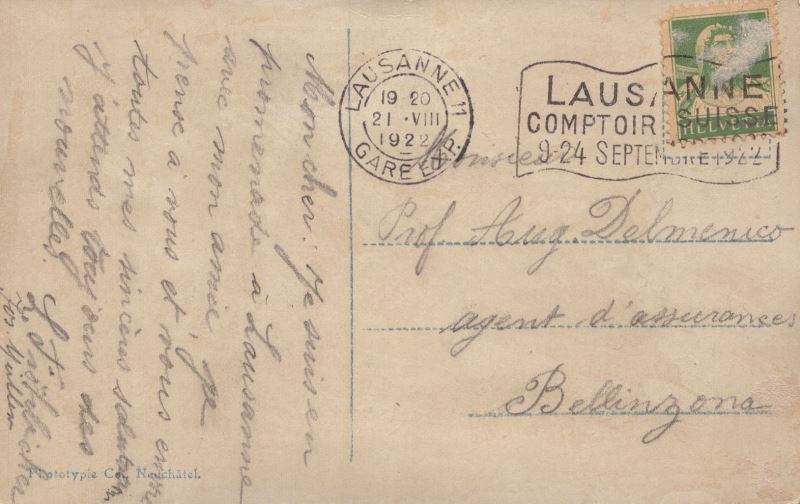 Mon cher! Je suis en
promenade à Lausanne
avec mon amie, je
pense à vous et vous envoie
toutes mes sincères salutations
J'attends toujours des
nouvelles.
LAUSANNE 11
19 20
21 · VIII
1922
GARE EXP.
LAUSANNE
COMPTOIR SUISSE
9-24 SEPTEMBRE 1922
HELVETIA
Monsieur
Prof. Aug. Delmenico
agent d'assurances
Bellinzona
Phototypie Co., Neuchâtel.